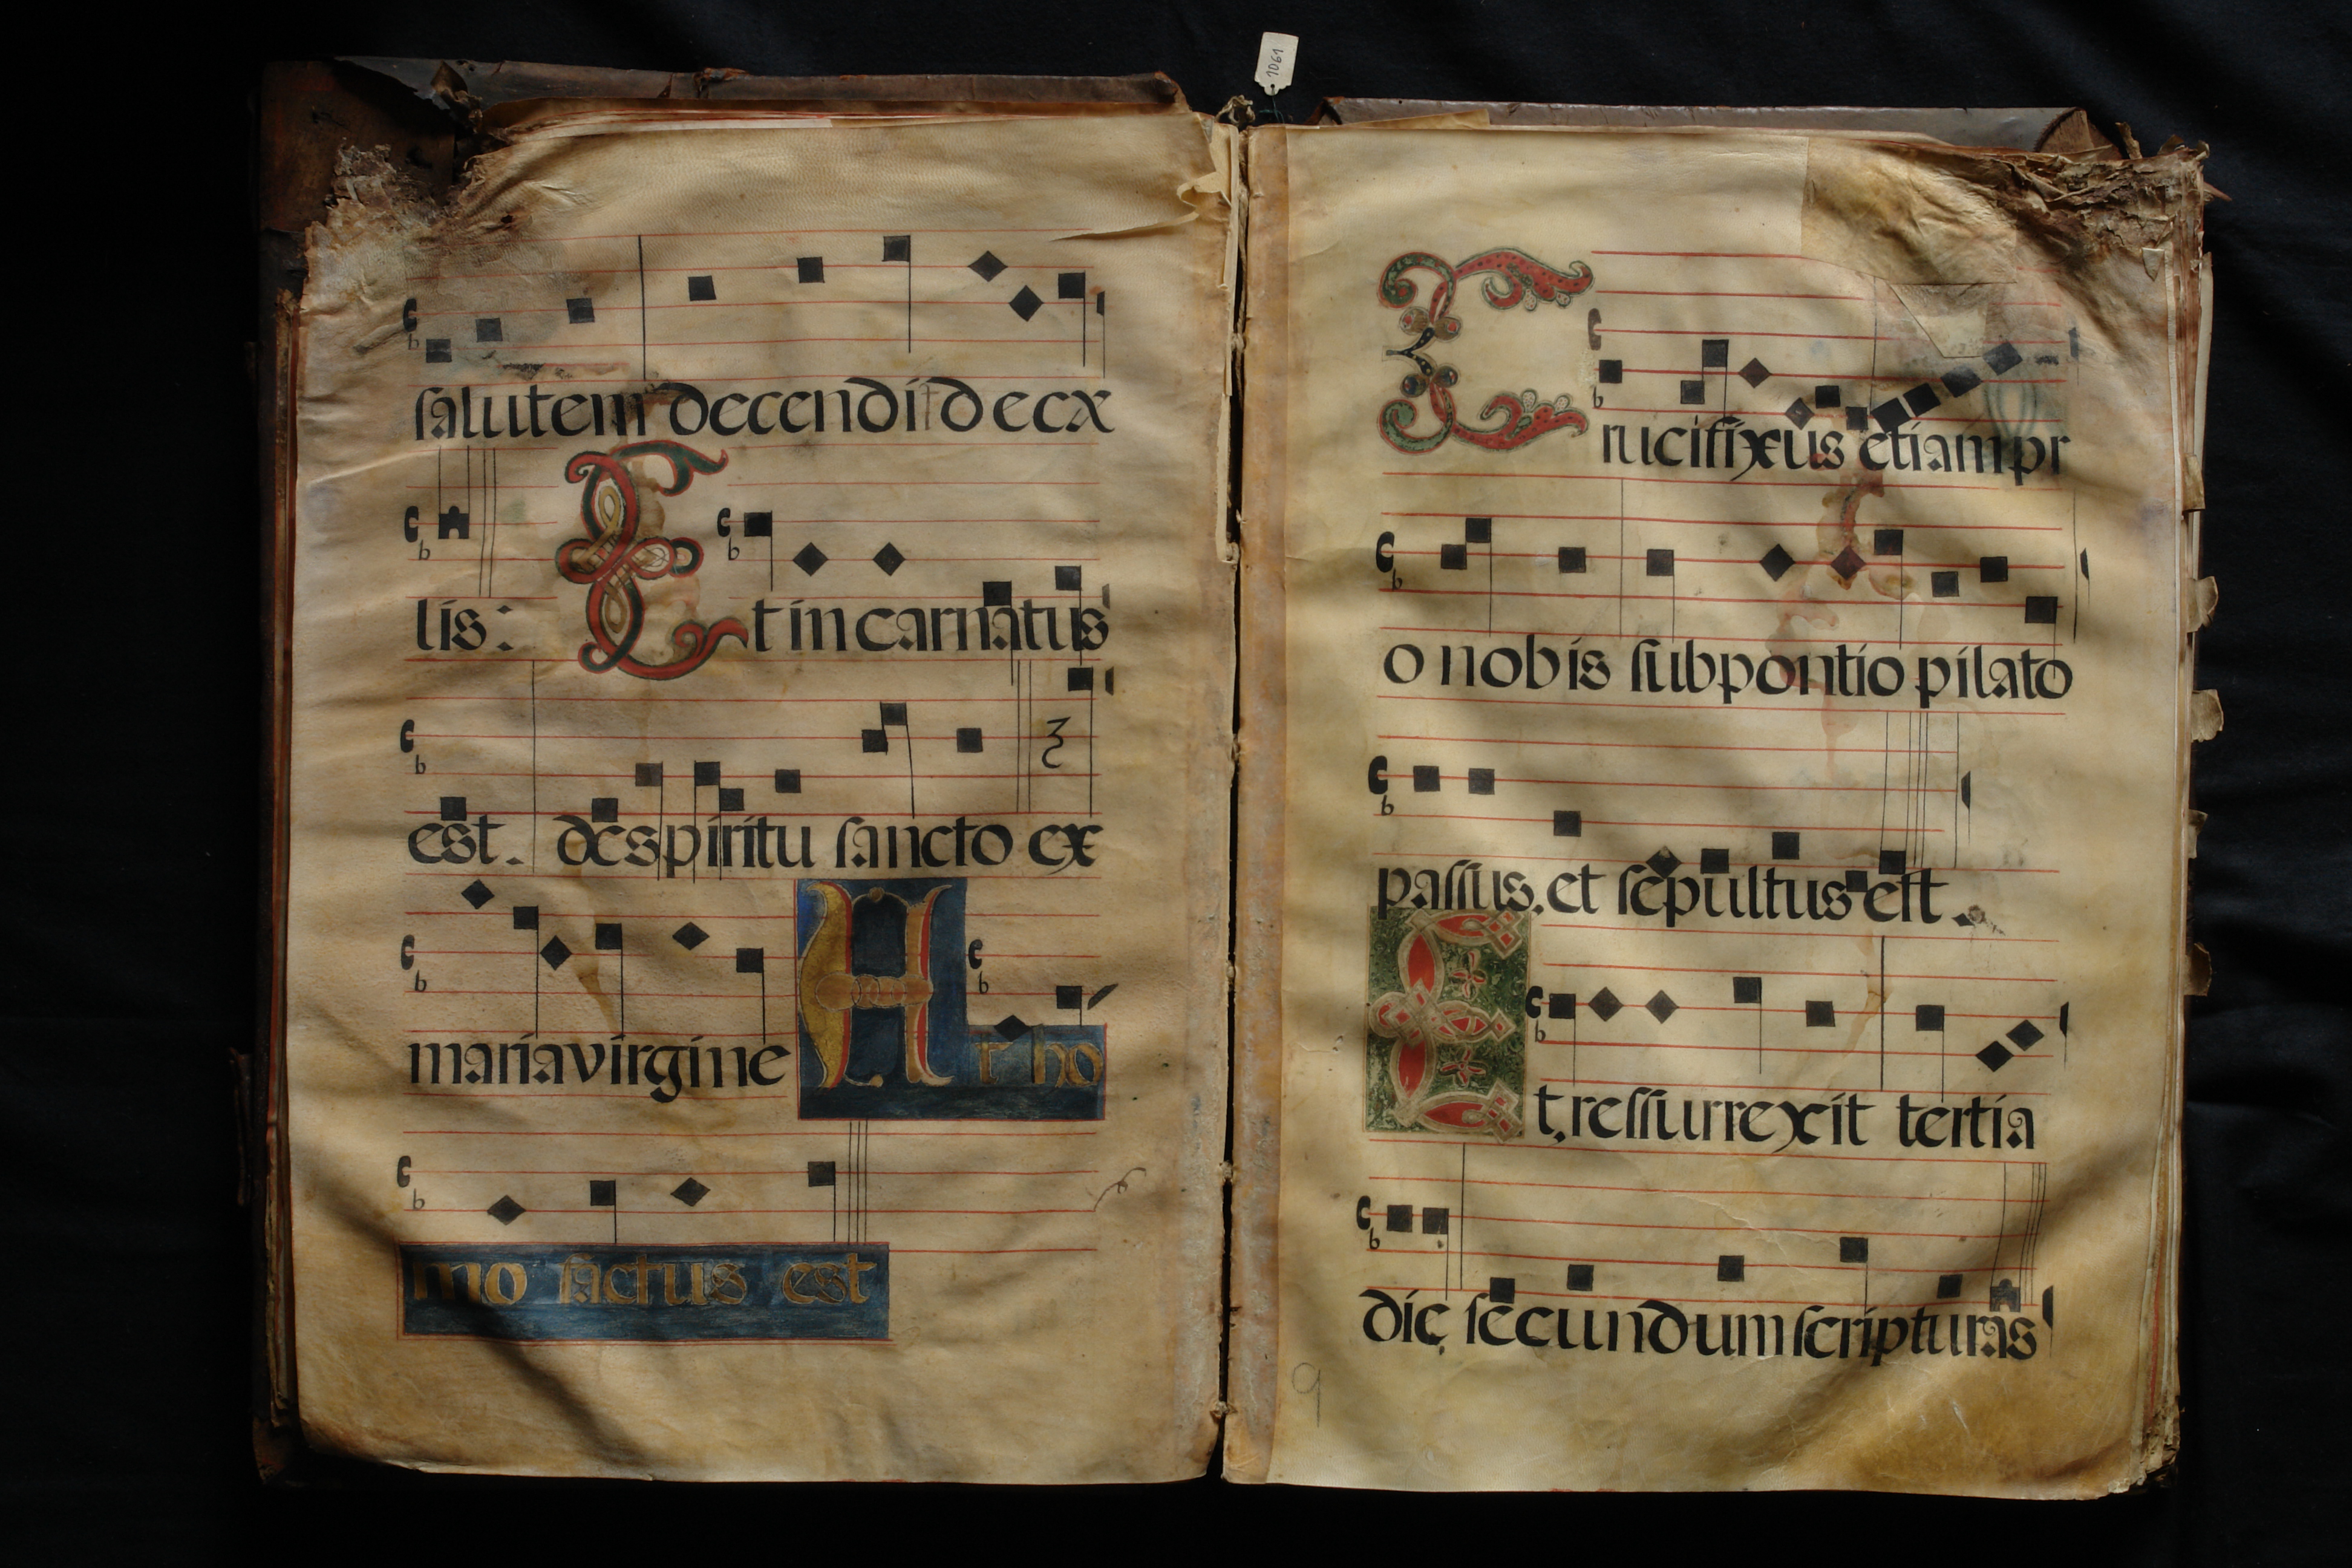 1061
salutem decendit de cx
lis: Et in carnatus
est. de spiritu sancto ex
maria virgine Et ho
mo factus est
Crucifixus etiam pr
o nobis sub pontio pilato
passus. et sepultus est.
Et, ressurrexit tertia
die secundum scripturas
9